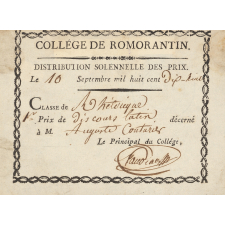 COLLÉGE DE ROMORANTIN.
DISTRIBUTION SOLENNELLE DES PRIX.
Le 10 Septembre mil huit cent dix-neuf
CLASSE de Rhétorique
1er Prix de discours latin décerné
à M. Auguste Couturier
Le Principal du Collége,